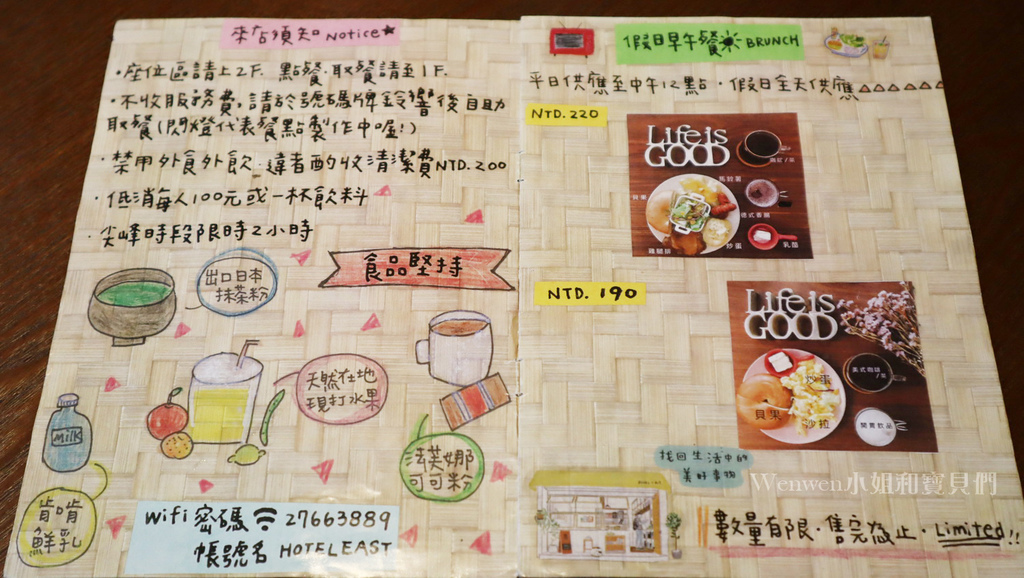 來店須知 Notice
・座位區請上2F. 點餐.取餐請至1F.
・不收服務費,請於號碼牌鈴響後自助
取餐(閃燈代表餐點製作中喔!)
・禁用外食外飲.違者酌收清潔費NTD.200
・低消每人100元或一杯飲料
・尖峰時段限時2小時
食品堅持
出口日本
抹茶粉
天然在地
現打水果
MILK
法芙娜
可可粉
肯啃
鮮乳
wifi 密碼 27663889
帳號名 HOTELEAST
假日早午餐 BRUNCH
平日供應至中午12點.假日全天供應
NTD.220
Life is
GOOD
馬鈴薯
貝果
德式香腸
雞腿排
炒蛋
乳酪
NTD. 190
Life is
GOOD
美式咖啡
/茶
炒蛋
貝果
沙拉
開胃飲品
找回生活中的
美好事物
Wenwen小姐和寶貝們
數量有限.售完為止.Limited!!